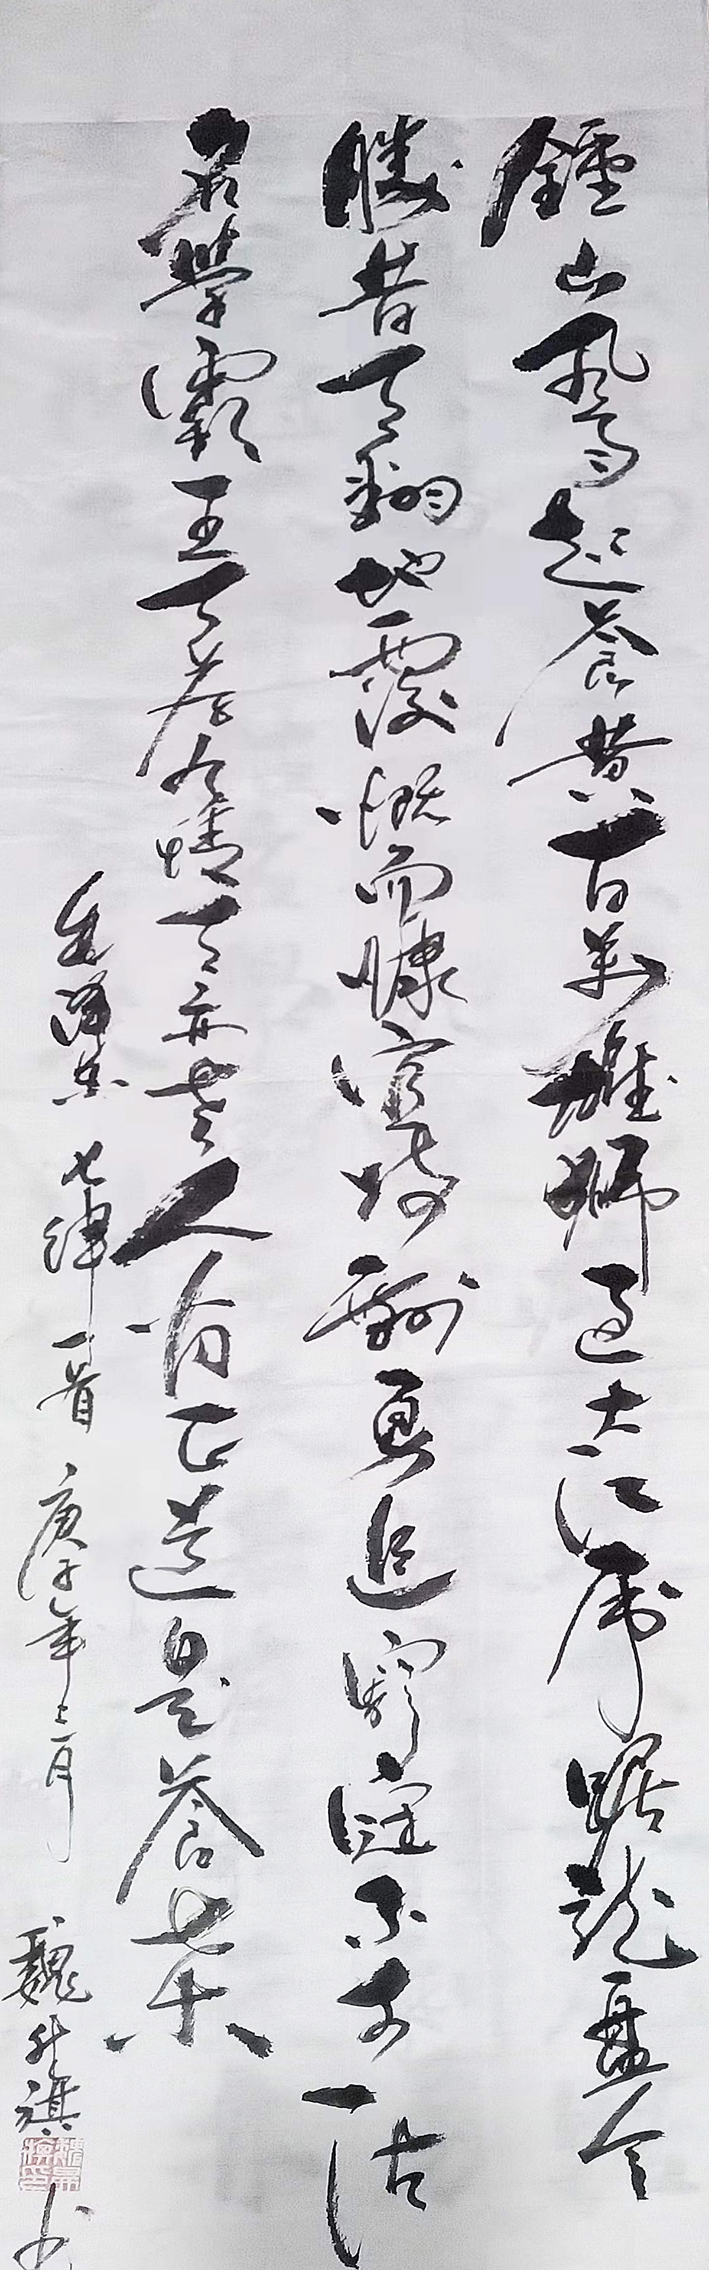 鍾山風雨起蒼黃百萬雄師過大江虎踞龍盤今
勝昔天翻地覆慨而慷宜將剩勇追窮寇不可沽
名學霸王天若有情天亦老人間正道是蒼桑
毛澤東七律一首 庚子年三月 魏升祺书